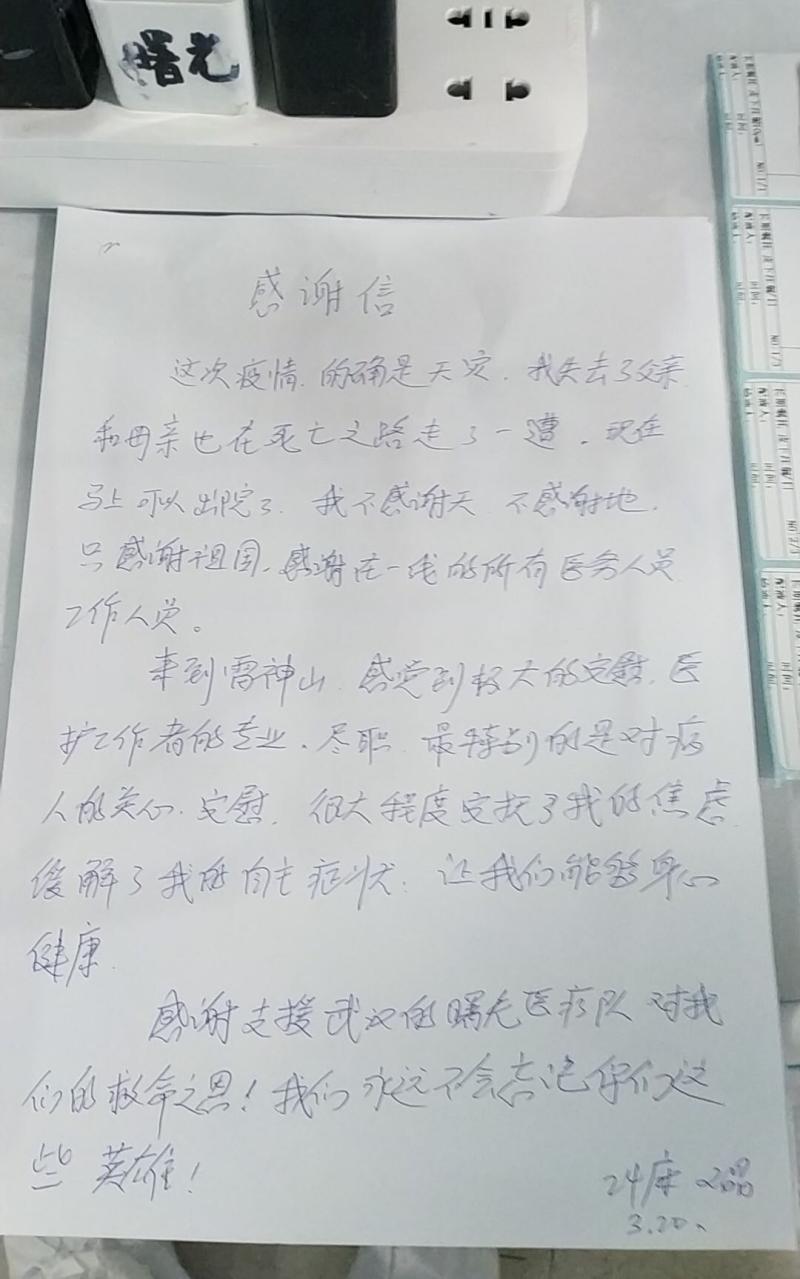 曙光
感谢信
这次疫情.的确是天灾.我失去了父亲.
和母亲也在死亡之路走了一遭.现在
马上可以出院了.我不感谢天.不感谢地.
只感谢祖国.感谢在一线的所有医务人员
工作人员。
来到雷神山.感觉到极大的安慰.医
护工作者的专业、尽职.最特别的是对病
人的关心.安慰.很大程度安抚了我的焦虑.
缓解了我的自主症状.让我们能够身心
健康.
感谢支援武汉的曙光医疗队对我
们的救命之恩!我们永远不会忘记你们这
些英雄!
24床
3.20.